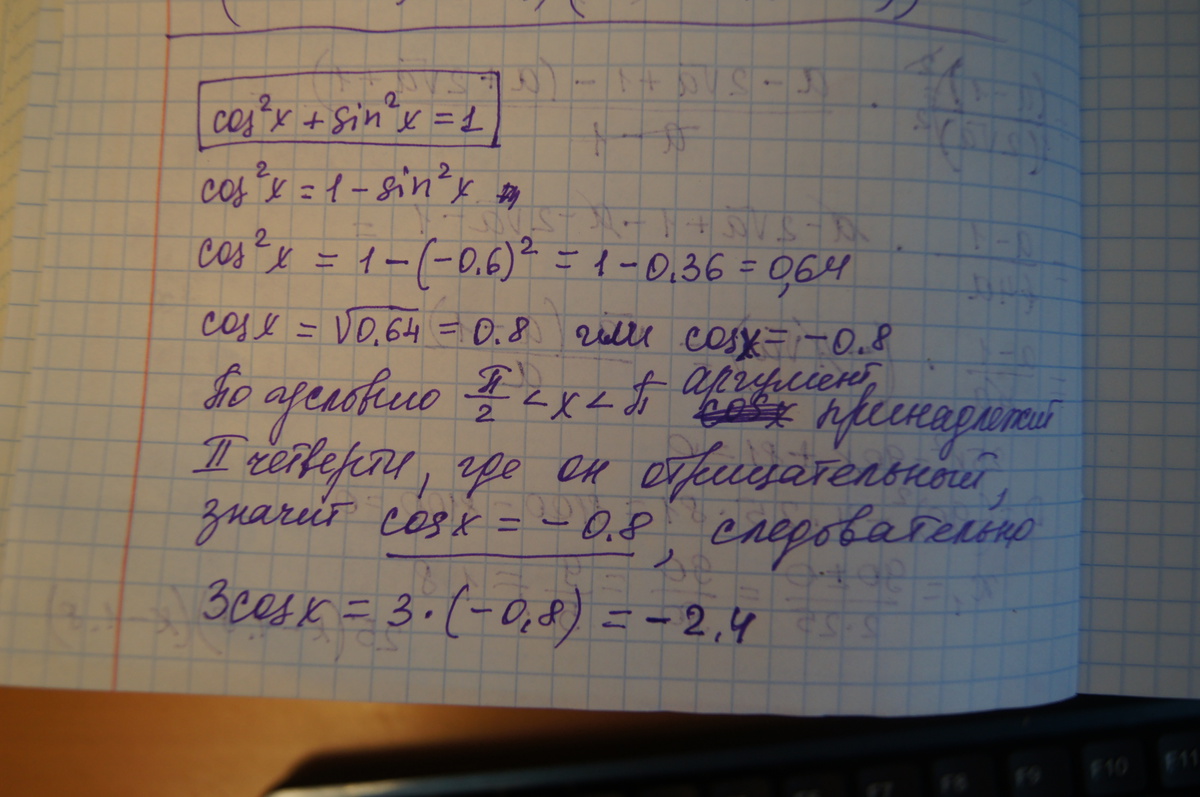 cos²x + sin²x = 1
cos²x = 1 - sin²x
cos²x = 1 - (-0.6)² = 1 - 0.36 = 0,64
cosx = √0.64 = 0.8 или cosx = -0.8
По условию π/2 < x < π аргумент принадлежит
II четверти, где он отрицательный,
значит cosx = -0.8, следовательно
3cosx = 3·(-0,8) = -2.4
F8
F9
F10
F11